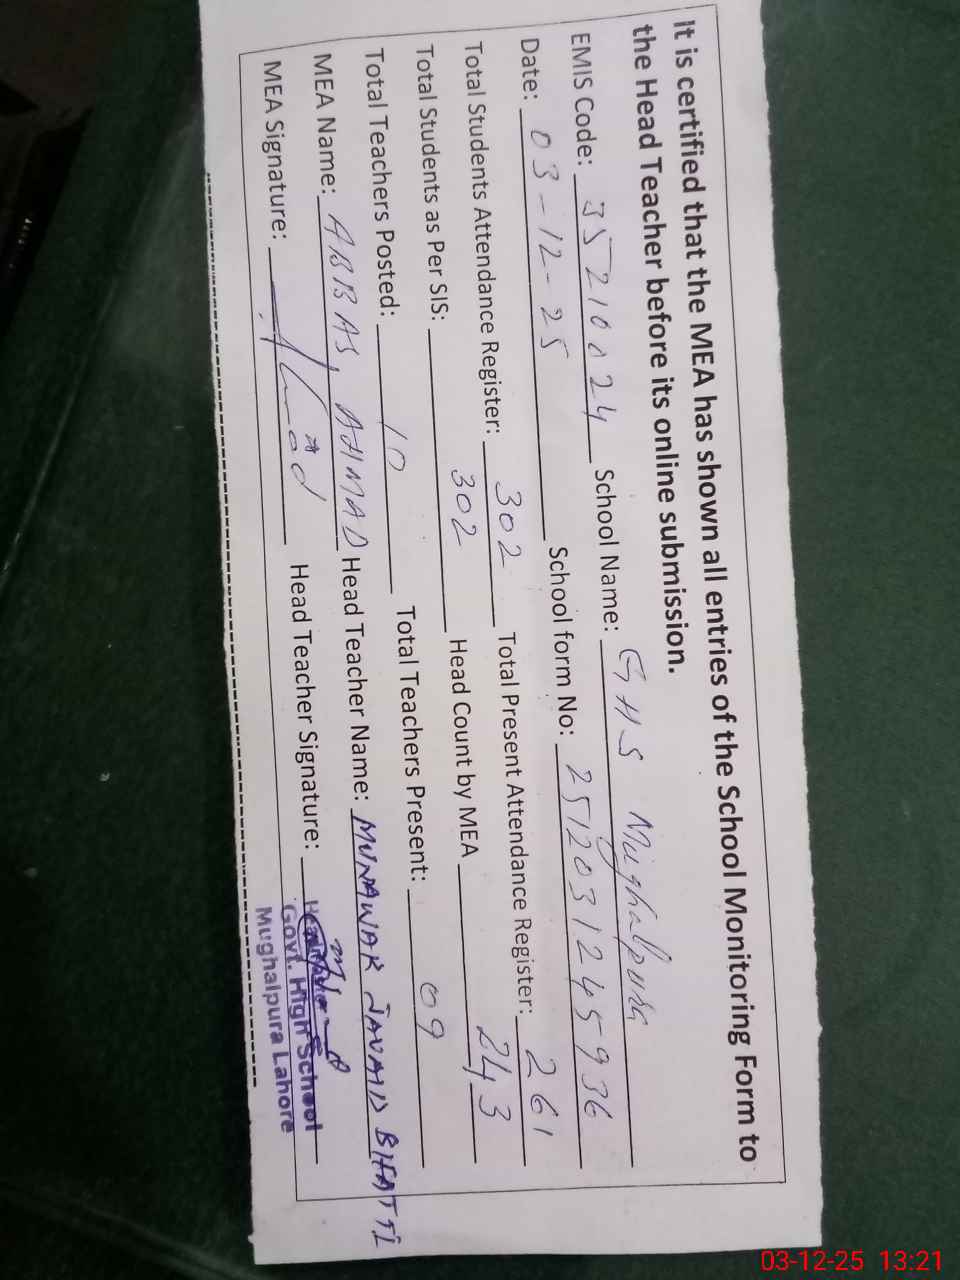 It is certified that the MEA has shown all entries of the School Monitoring Form to
the Head Teacher before its online submission.
EMIS Code: 35210024 School Name: GHS Mughalpura
Date: 03-12-25 School form No: 2512031245936
Total Students Attendance Register: 302 Total Present Attendance Register: 261
Total Students as Per SIS: 302 Head Count by MEA 243
Total Teachers Posted: 10 Total Teachers Present: 09
MEA Name: ABBAS, AHMAD Head Teacher Name: MUNAWAR JAVAID BHATTI
MEA Signature: Head Teacher Signature:
Govt. High School
Mughalpura Lahore
03-12-25 13:21